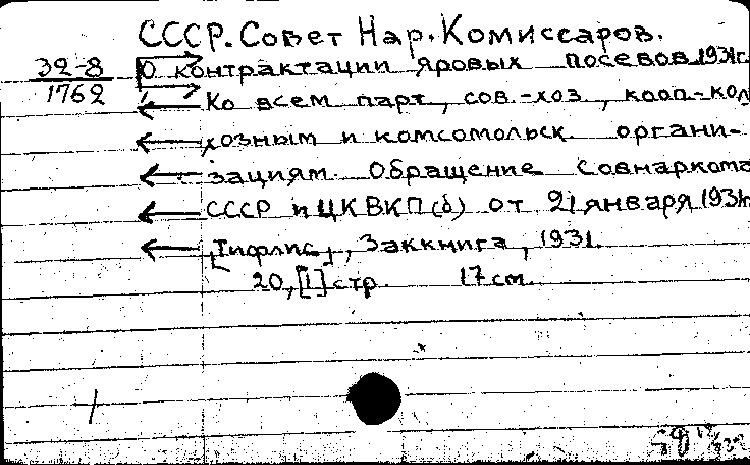 СССР. Совет Нар. Комиссаров.
32-8
1762
О контрактации яровых посевов 1931г.
Ко всем парт, сов.-хоз, кооп-кол
хозным и комсомольск органи-
зациям. Обращение Совнаркома
СССР и ЦК ВКП(б) от 21 января 1931г.
[Тифлис], Заккнига, 1931.
20, [1] стр. 17 см.